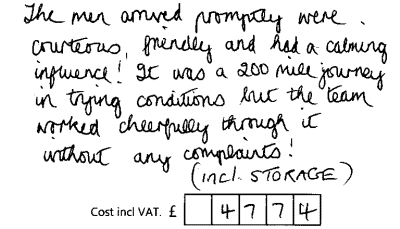 The men arrived promptly were.
courteous, friendly and had a calming
influence! It was a 200 mile journey
in trying conditions but the team
worked cheerfully through it
without any complaints!
(incl. STORAGE)
Cost incl VAT. £ 4774